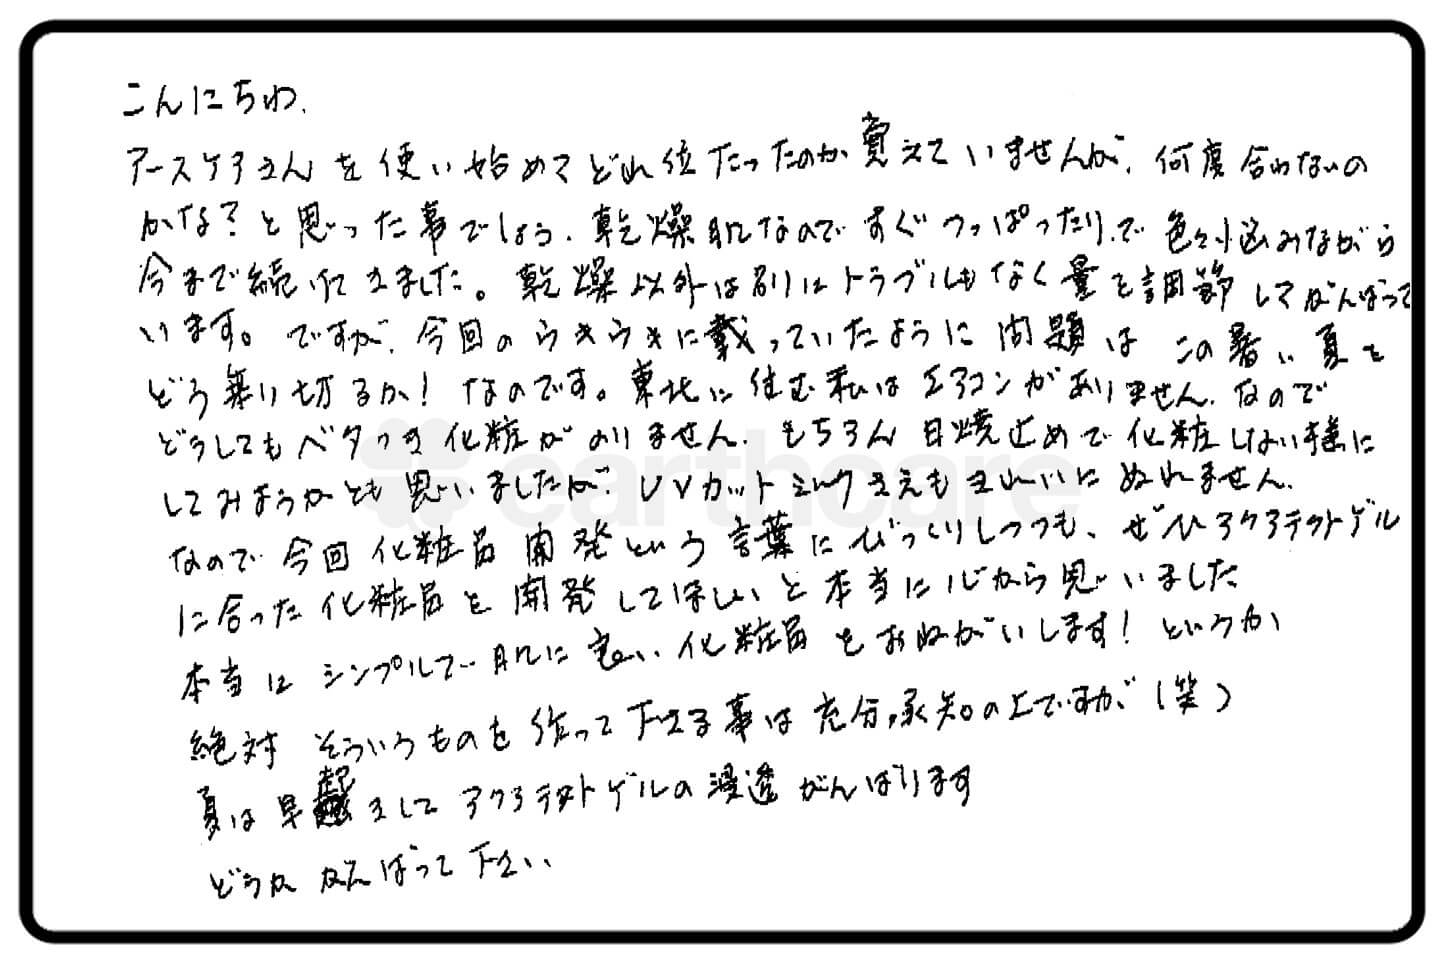 こんにちわ.
アースケアさんを使い始めてどれ位たったのか覚えていませんが、何度合わないの
かな?と思った事でしょう、乾燥肌なのですぐつっぱったり、で色々悩みながら
今まで続いてきました。乾燥以外は別にトラブルもなく量を調節してがんばって
います。ですが、今回のうきうきに載っていたように問題はこの暑い夏を
どう乗り切るか!なのです。東北に住む私はエアコンがありません、なので
どうしてもベタつき化粧がのりません、もちろん日焼止めで化粧しない様に
してみようかとも思いましたが、UVカットミルクさえもきれいにぬれません、
なので今回化粧品開発という言葉にびっくりしつつも、ぜひアクアテクトゲル
に合った化粧品を開発してほしいと本当に心から思いました
本当にシンプルで肌に良い化粧品をおねがいします!というか
絶対そういうものを作って下さる事は充分、承知の上ですが(笑)
夏は早起きしてアクアテクトゲルの浸透がんばります
どうかがんばって下さい
earthcare